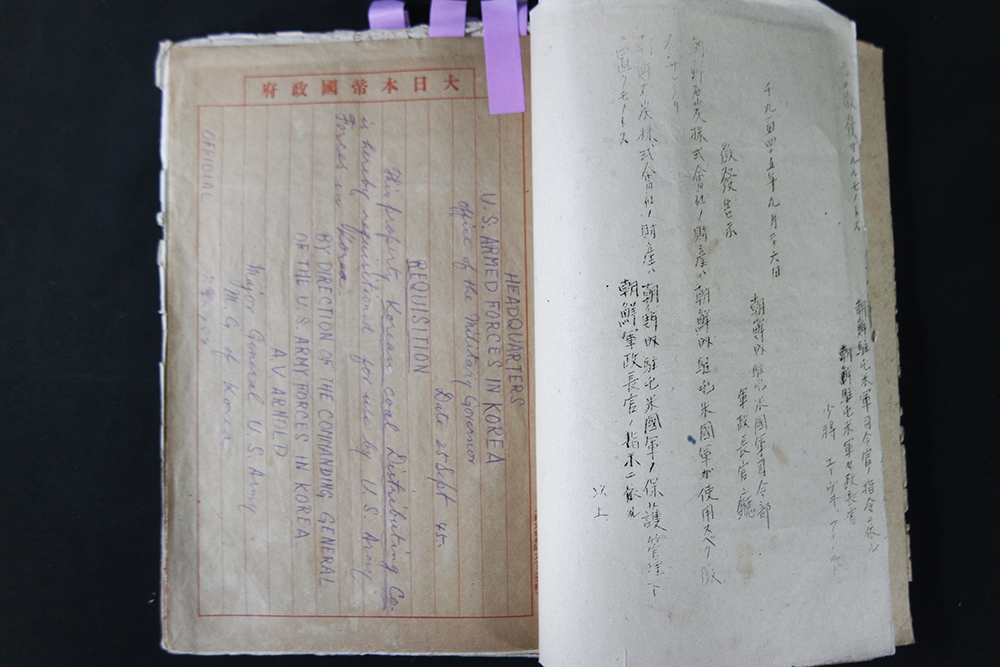 大日本帝國政府
HEADQUARTERS
U.S. ARMED FORCES IN KOREA
Office of the Military Governor
Date 25 Sept 45.
REQUISITION
This property, Korean coal Distributing Co.
is hereby requisitioned for use by U.S. Army
Forces in Korea.
BY DIRECTION OF THE COMMANDING GENERAL
OF THE U.S. ARMY FORCES IN KOREA
A V ARNOLD
Major General U.S. Army
M.G of Korea
OFFICIAL
朝鮮駐屯米軍司令官ノ指令ニ依ル
朝鮮駐屯米軍々政長官
少將
發サルルモノトス
千九百四十五年九月二十六日
朝鮮內駐屯米國軍司令部
軍政長官廳
徴發告示
朝鮮石炭株式會社ノ財産ハ朝鮮內駐屯米國軍ガ使用スベク徴
石炭株式會社ノ財産ハ朝鮮內駐屯米國軍ノ保護管理下
置クモノトス
朝鮮軍政長官ノ指示ニ依ル
以上